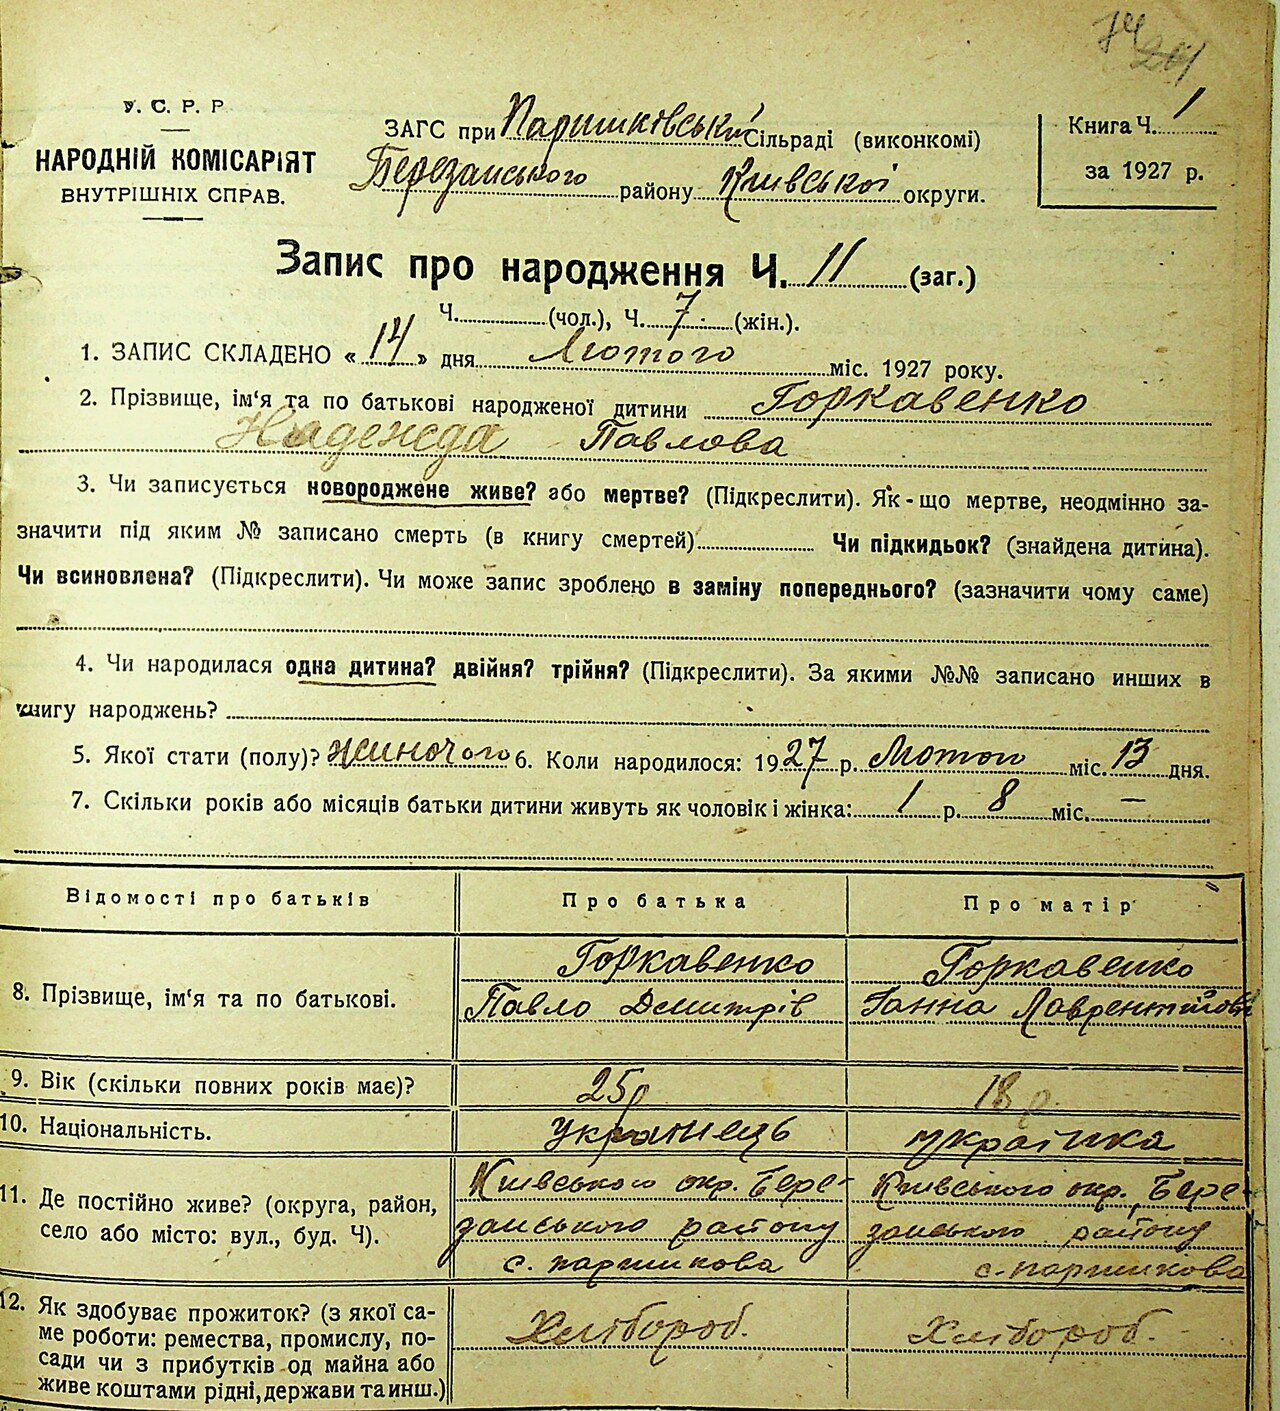 74
У. С. Р. Р
НАРОДНІЙ КОМІСАРІЯТ
ВНУТРІШНІХ СПРАВ.
ЗАГС при Паришківській Сільраді (виконкомі)
Березанського району Київської округи.
Книга Ч. 1
за 1927 р.
Запис про народження Ч. 11 (заг.)
Ч. (чол.), Ч. 7 (жін.).
1. ЗАПИС СКЛАДЕНО « 14 » дня Лютого міс. 1927 року.
2. Прізвище, ім'я та по батькові народженої дитини Горкавенко
Надежда Павлова
3. Чи записується новороджене живе? або мертве? (Підкреслити). Як-що мертве, неодмінно за-
значити під яким № записано смерть (в книгу смертей) Чи підкидьок? (знайдена дитина).
Чи всиновлена? (Підкреслити). Чи може запис зроблено в заміну попереднього? (зазначити чому саме)
4. Чи народилася одна дитина? двійня? трійня? (Підкреслити). За якими №№ записано инших в
книгу народжень?
5. Якої стати (полу)? жиночого 6. Коли народилося: 1927 р. Лютого міс. 13 дня.
7. Скільки років або місяців батьки дитини живуть як чоловік і жінка: 1 р. 8 міс. —
Відомості про батьків Про батька Про матір
8. Прізвище, ім'я та по батькові.
Горкавенко
Павло Дмитрів
Горкавенко
Ганна Лаврентійова
9. Вік (скільки повних років має)? 25 р 18 р.
10. Національність. українець українка
11. Де постійно живе? (округа, район,
село або місто: вул., буд. Ч).
Київського окр. Бере-
занського району
с. паришкова
Київського окр., Бере-
занського району
с. паришкова
12. Як здобуває прожиток? (з якої са-
ме роботи: ремества, промислу, по-
сади чи з прибутків од майна або
живе коштами рідні, держави та инш.)
Хлібороб.
Хлібороб.